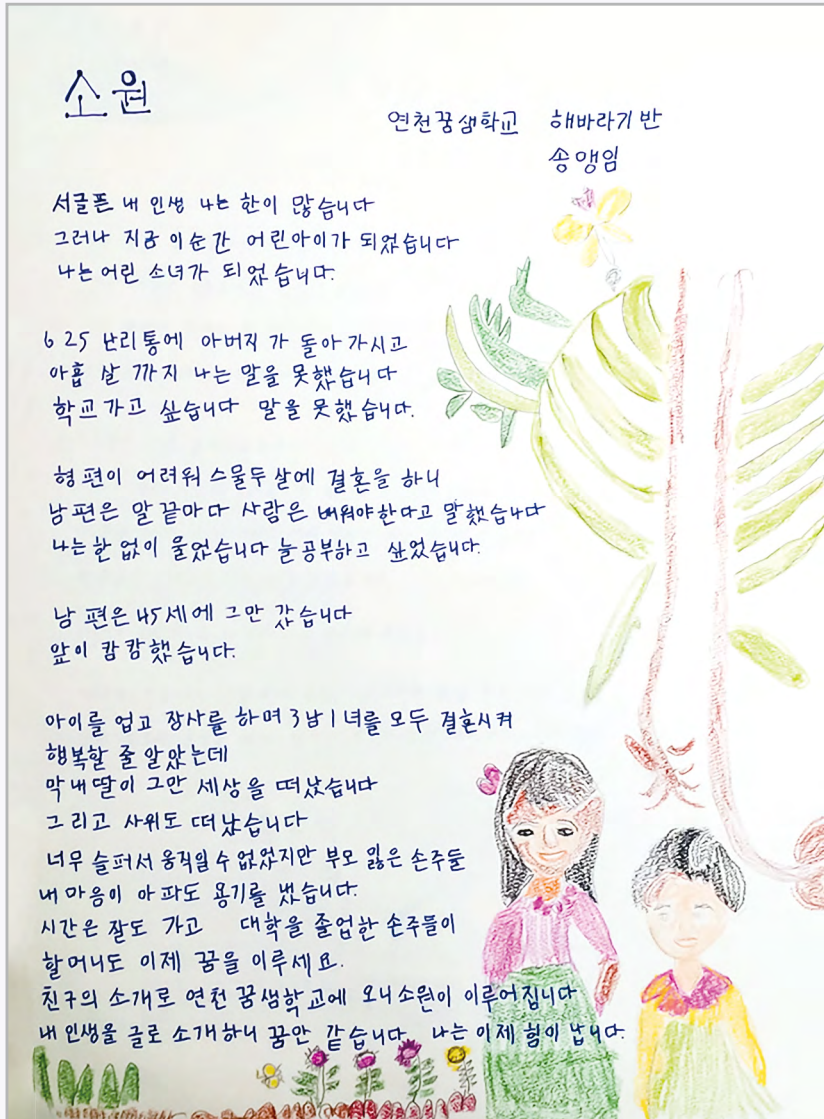 소원
연천꿈샘학교 해바라기반
송앵임
서글픈 내 인생 나는 한이 많습니다
그러나 지금 이순간 어린아이가 되었습니다
나는 어린 소녀가 되었습니다.
6 25 난리통에 아버지가 돌아가시고
아홉 살 까지 나는 말을 못했습니다
학교가고 싶습니다 말을 못했습니다.
형편이 어려워 스물두살에 결혼을 하니
남편은 말 끝마다 사람은 배워야한다고 말했습니다
나는 한 없이 울었습니다 늘 공부하고 싶었습니다.
남편은 45세에 그만 갔습니다
앞이 캄캄했습니다.
아이를 업고 장사를 하며 3남1녀를 모두 결혼시켜
행복할 줄 알았는데
막내딸이 그만 세상을 떠났습니다
그리고 사위도 떠났습니다
너무 슬퍼서 움직일 수 없었지만 부모 잃은 손주들
내 마음이 아파도 용기를 냈습니다.
시간은 잘도 가고 대학을 졸업한 손주들이
할머니도 이제 꿈을 이루세요.
친구의 소개로 연천 꿈샘학교에 오니 소원이 이루어집니다
내 인생을 글로 소개하니 꿈만 같습니다. 나는 이제 힘이 납니다.